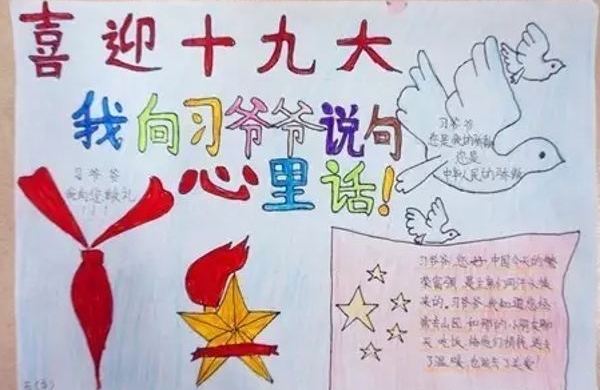 喜迎十九大
我向习爷爷说句
心里话!
习爷爷
您是我的骄傲
您是
中华人民的骄傲
习爷爷
我向您敬礼
!!!
习爷爷,您好,中国今天的繁
荣富强,是
来的,习爷爷,我知道您经
常去山区,和那的小朋友聊
天,吃饭,给他们捐钱,送去
了温暖,也送去了关爱!
五(5)